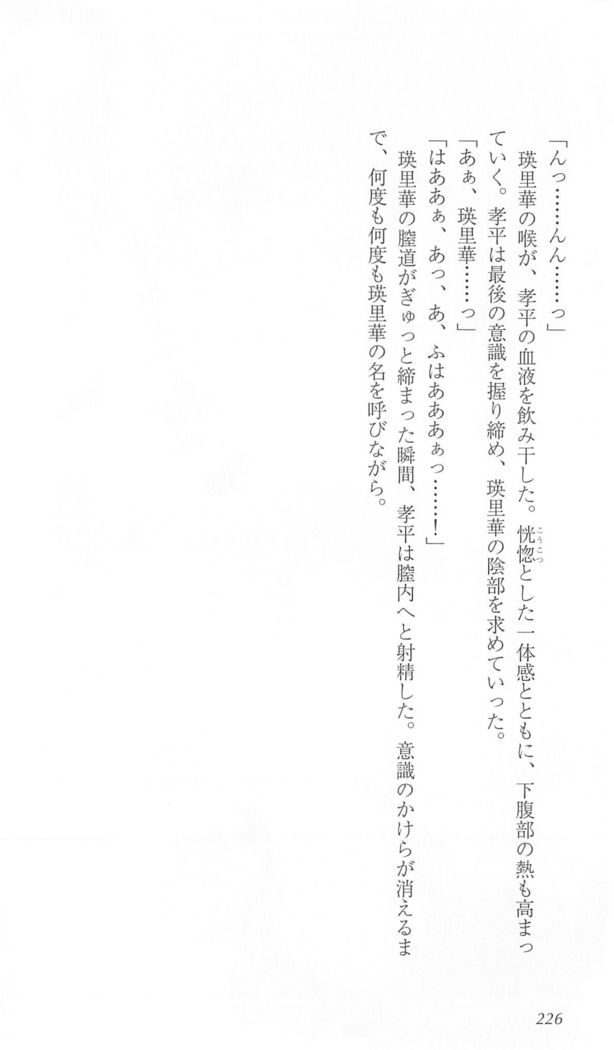 「んっ……んん……っ」
瑛里華の喉が、孝平の血液を飲み干した。恍惚とした一体感とともに、下腹部の熱も高まっ
こうこつ
ていく。孝平は最後の意識を握り締め、瑛里華の陰部を求めていった。
「あぁ、瑛里華……っ」
「はああぁ、あっ、あ、ふはあああぁっ……！」
瑛里華の膣道がぎゅっと締まった瞬間、孝平は膣内へと射精した。意識のかけらが消えるま
で、何度も何度も瑛里華の名を呼びながら。
226